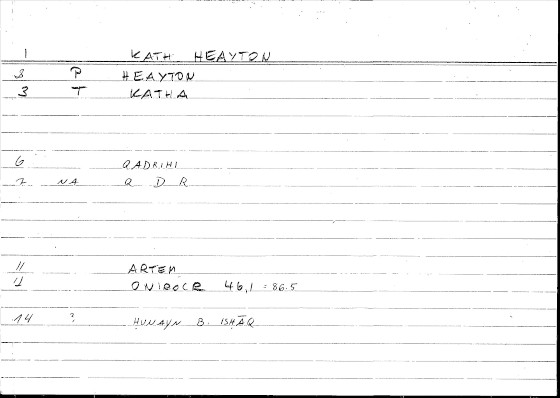 1 KATH HEAYTON
2 P HEAYTON
3 T KATHA
6 QADRIHI
7 NA Q D R
11 ARTEM
4 ONIROCR 46,1 = 86.5
14 ? ḤUNAYN B. ISḤĀQ